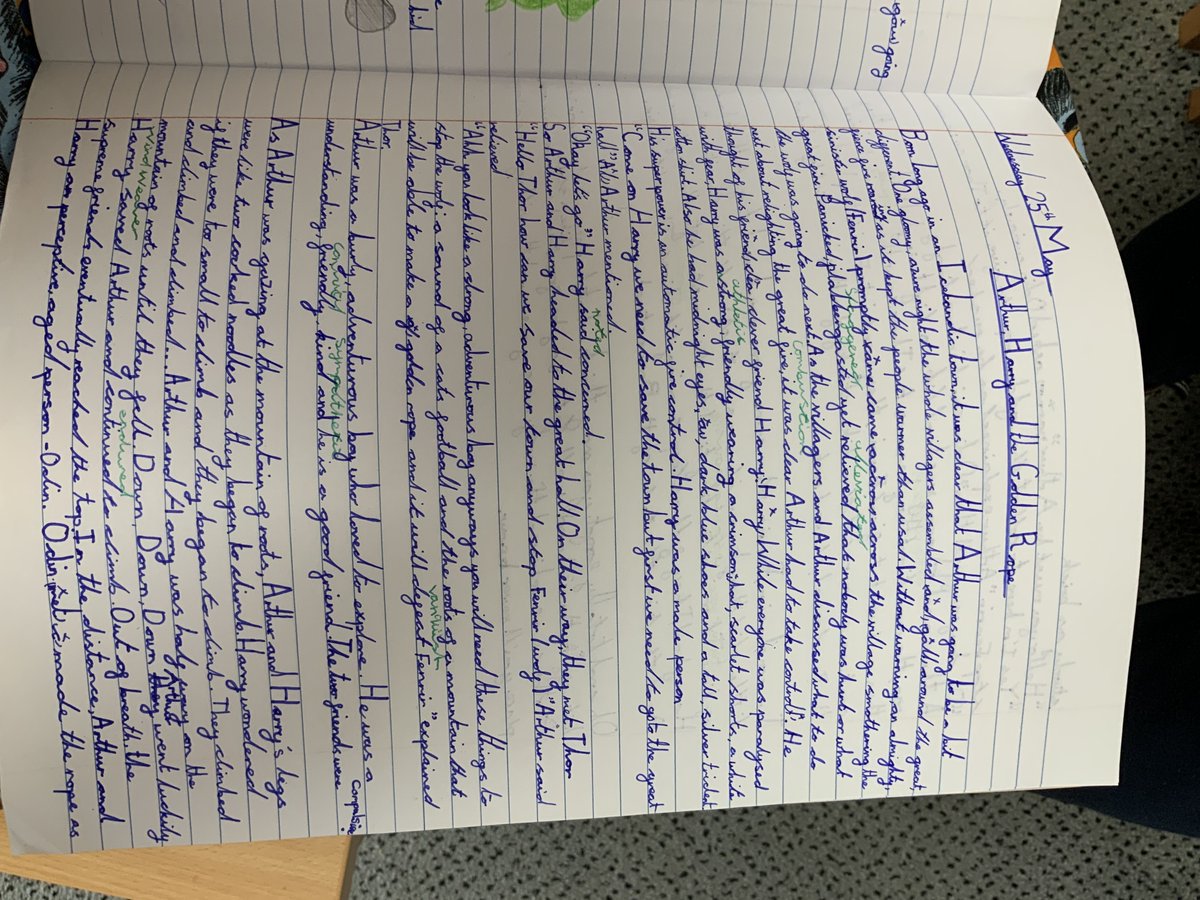 Wednesday 25th May
Arthur, Harry and the Golden Rope
Born long ago in an Icelandic town it was clear that Arthur was going to be a bit
different. One gloomy, azure night the whole villagers assembled and, gathered around the great
fire as it kept the people warmer than usual. Without warning, an almighty,
sinister wolf (Fenrir) promptly came across the village smothering the
great fire. Panicked, flabbergasted yet relieved that nobody was hurt or what
stingened alleviated
the wolf was going to do next. As the villagers and Arthur discussed what to do
combustion
next about relighting the great fire, it was clear Arthur had to take control. He
thought of his friend clever friend Harry, While everyone was paralysed
with fear, Harry was a strong, friendly, wearing a crimson hat, scarlet shorts, a white
athletic
with shirt. Also he had midnight eyes, dark blue shoes and a tall, silver trident
His superpower is an automatic fire control. Harry was a male person
"Come on Harry we need to save the town but first we need to go to the great
hall" Arthur mentioned.
"Okay let's go" Harry said concerned.
noted
So Arthur and Harry headed to the great hall. On their way, they met Thor
"Hello Thor how can we save our town and stop Fenrir (wolf)" Arthur said
relieved
"Ahh you look like a strong, adventurous boy anyways you will need these things to
stop the wolf: a sound of a cats footfall and the roots of a mountain that
will be able to make a golden rope and it will defeat Fenrir" explained
vanquish
Thor.
Arthur was a burly, adventurous boy who loved to explore. He was a
compulsive
understanding, friendly, kind and he is a good friend. The two friends were
sympathetic
As Arthur was gazing at the mountain of roots, Arthur and Harry's legs
were like two cooked noodles as they began to climb. Harry wondered
if they were to small to climb and they began to climb. They climbed
and climbed and climbed... Arthur and Harry was half way on the
mountain of roots until they fell. Down, Down, Down they went luckily
Wind Weaver
Harry saved Arthur and continued to climb. Out of breath the
endured
supreme friends, eventually, reached the top. In the distance, Arthur and
Harry saw perceptive, aged person - Odin. Odin made the rope as